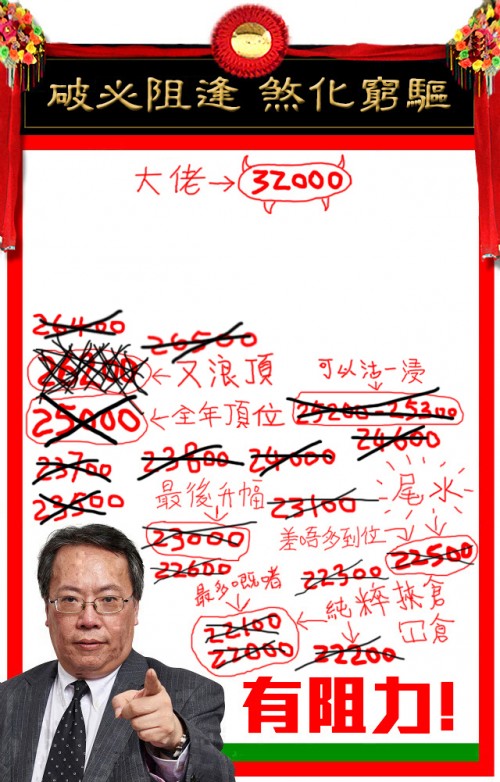 驅窮化煞 逢阻必破
大佬→32000
26400
26500
←又浪頂
可以沽一浸
25000
←全年頂位
25200-25300
24600
23700
23800
24000
23500
最後升幅
23100
尾水
23000
差唔多到位
22500
22600
22300
最多嘅啫
22100
22000
純粹挾倉
冚倉
22200
有阻力!